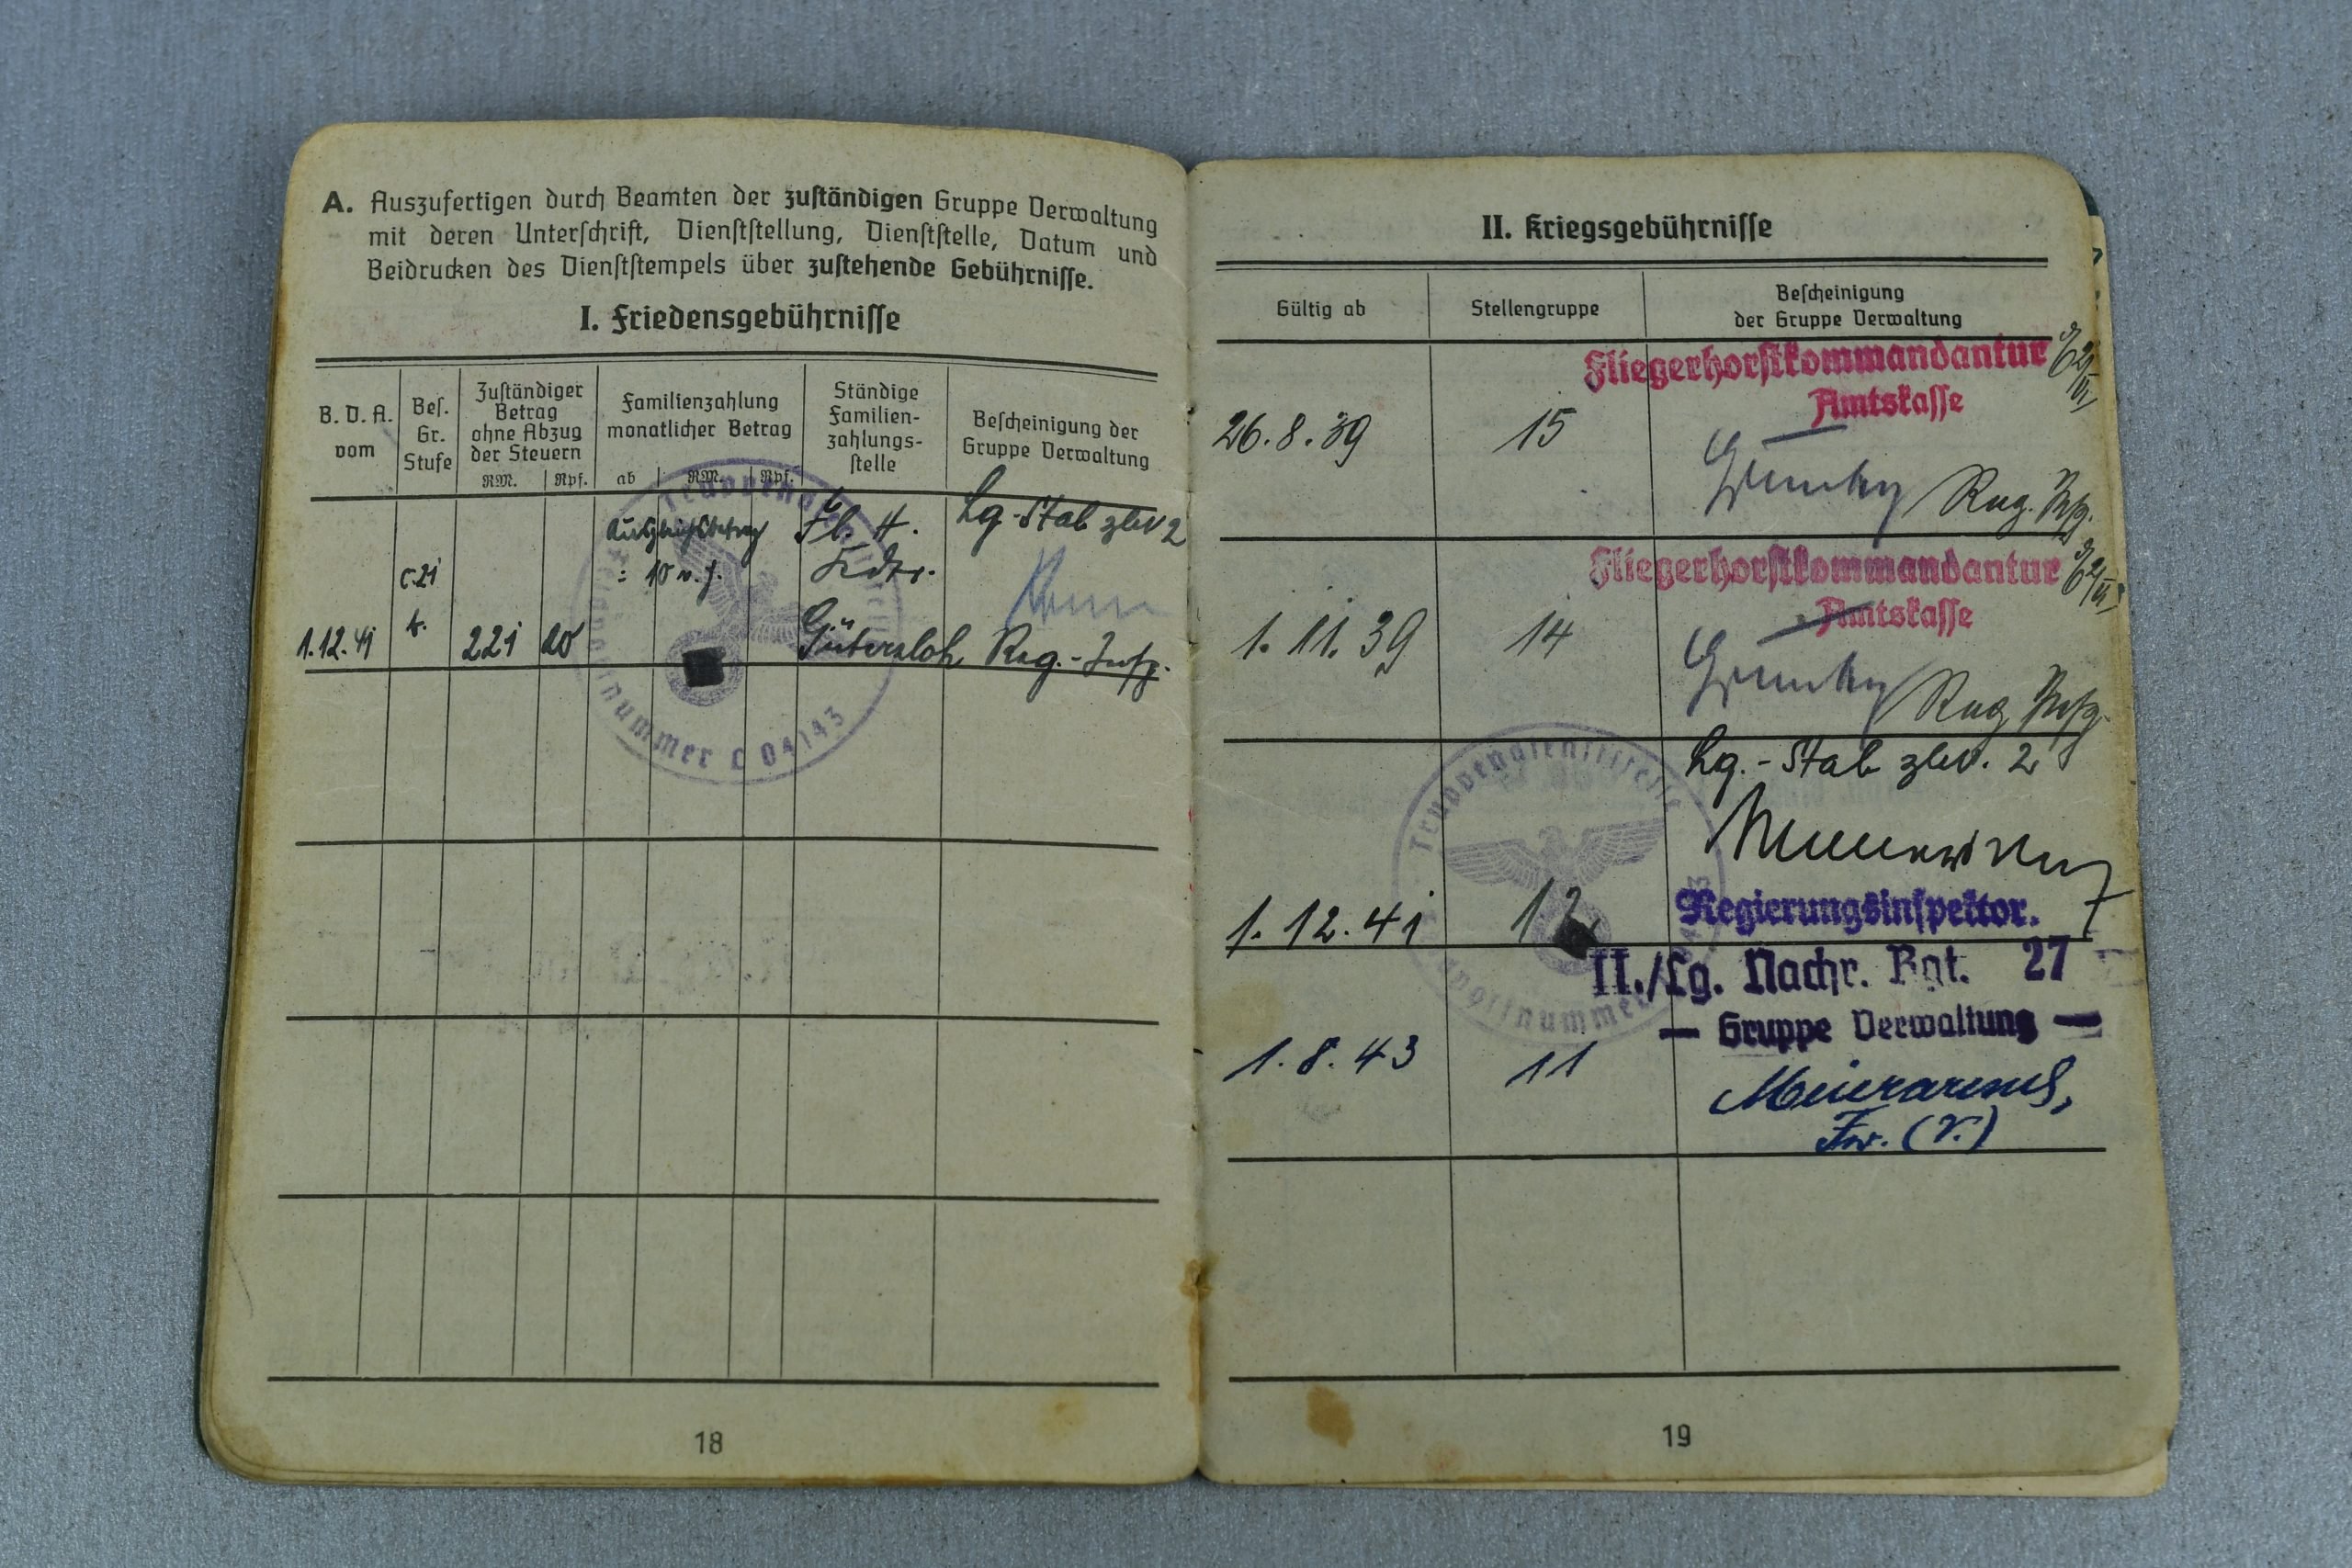 A. Auszufertigen durch Beamten der zuständigen Gruppe Verwaltung
mit deren Unterschrift, Dienststellung, Dienststelle, Datum und
Beidrucken des Dienststempels über zustehende Gebührnisse.
I. Friedensgebührnisse
B. D. A.
vom
Bes.
Gr.
Stufe
Zuständiger
Betrag
ohne Abzug
der Steuern
RM.
Rpf.
Familienzahlung
monatlicher Betrag
ab
RM.
Rpf.
Ständige
Familien-
zahlungs-
stelle
Bescheinigung der
Gruppe Verwaltung
1.12.41
c21
221
20
Ausgleichsbetrag
= 10 v. H.
Fl. H.
Kdtr.
Gütersloh
Lg-Stab zbV 2
Reg.-Insp.
nummer L 04143
18
II. Kriegsgebührnisse
Gültig ab
Stellengruppe
Bescheinigung
der Gruppe Verwaltung
Fliegerhorstkommandantur
Amtskasse
26.8.39
15
Reg. Insp.
Fliegerhorstkommandantur
Amtskasse
1.11.39
14
Reg Insp.
Truppendienststelle
Lg.-Stab zbV. 2
1.12.41
12
Regierungsinspektor.
II./Lg. Nachr. Rgt. 27
— Gruppe Verwaltung —
1.8.43
11
Fw. (V.)
19